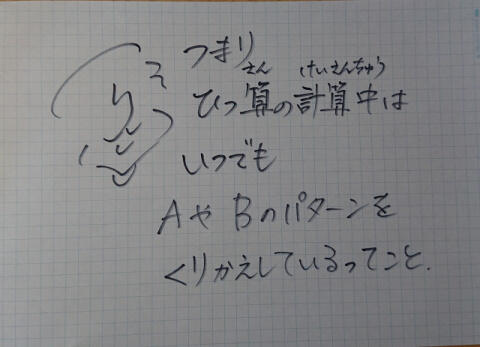 つまり
さん けいさんちゅう
ひっ算の計算中は
いつでも
AやBのパターンを
くりかえしているってこと.